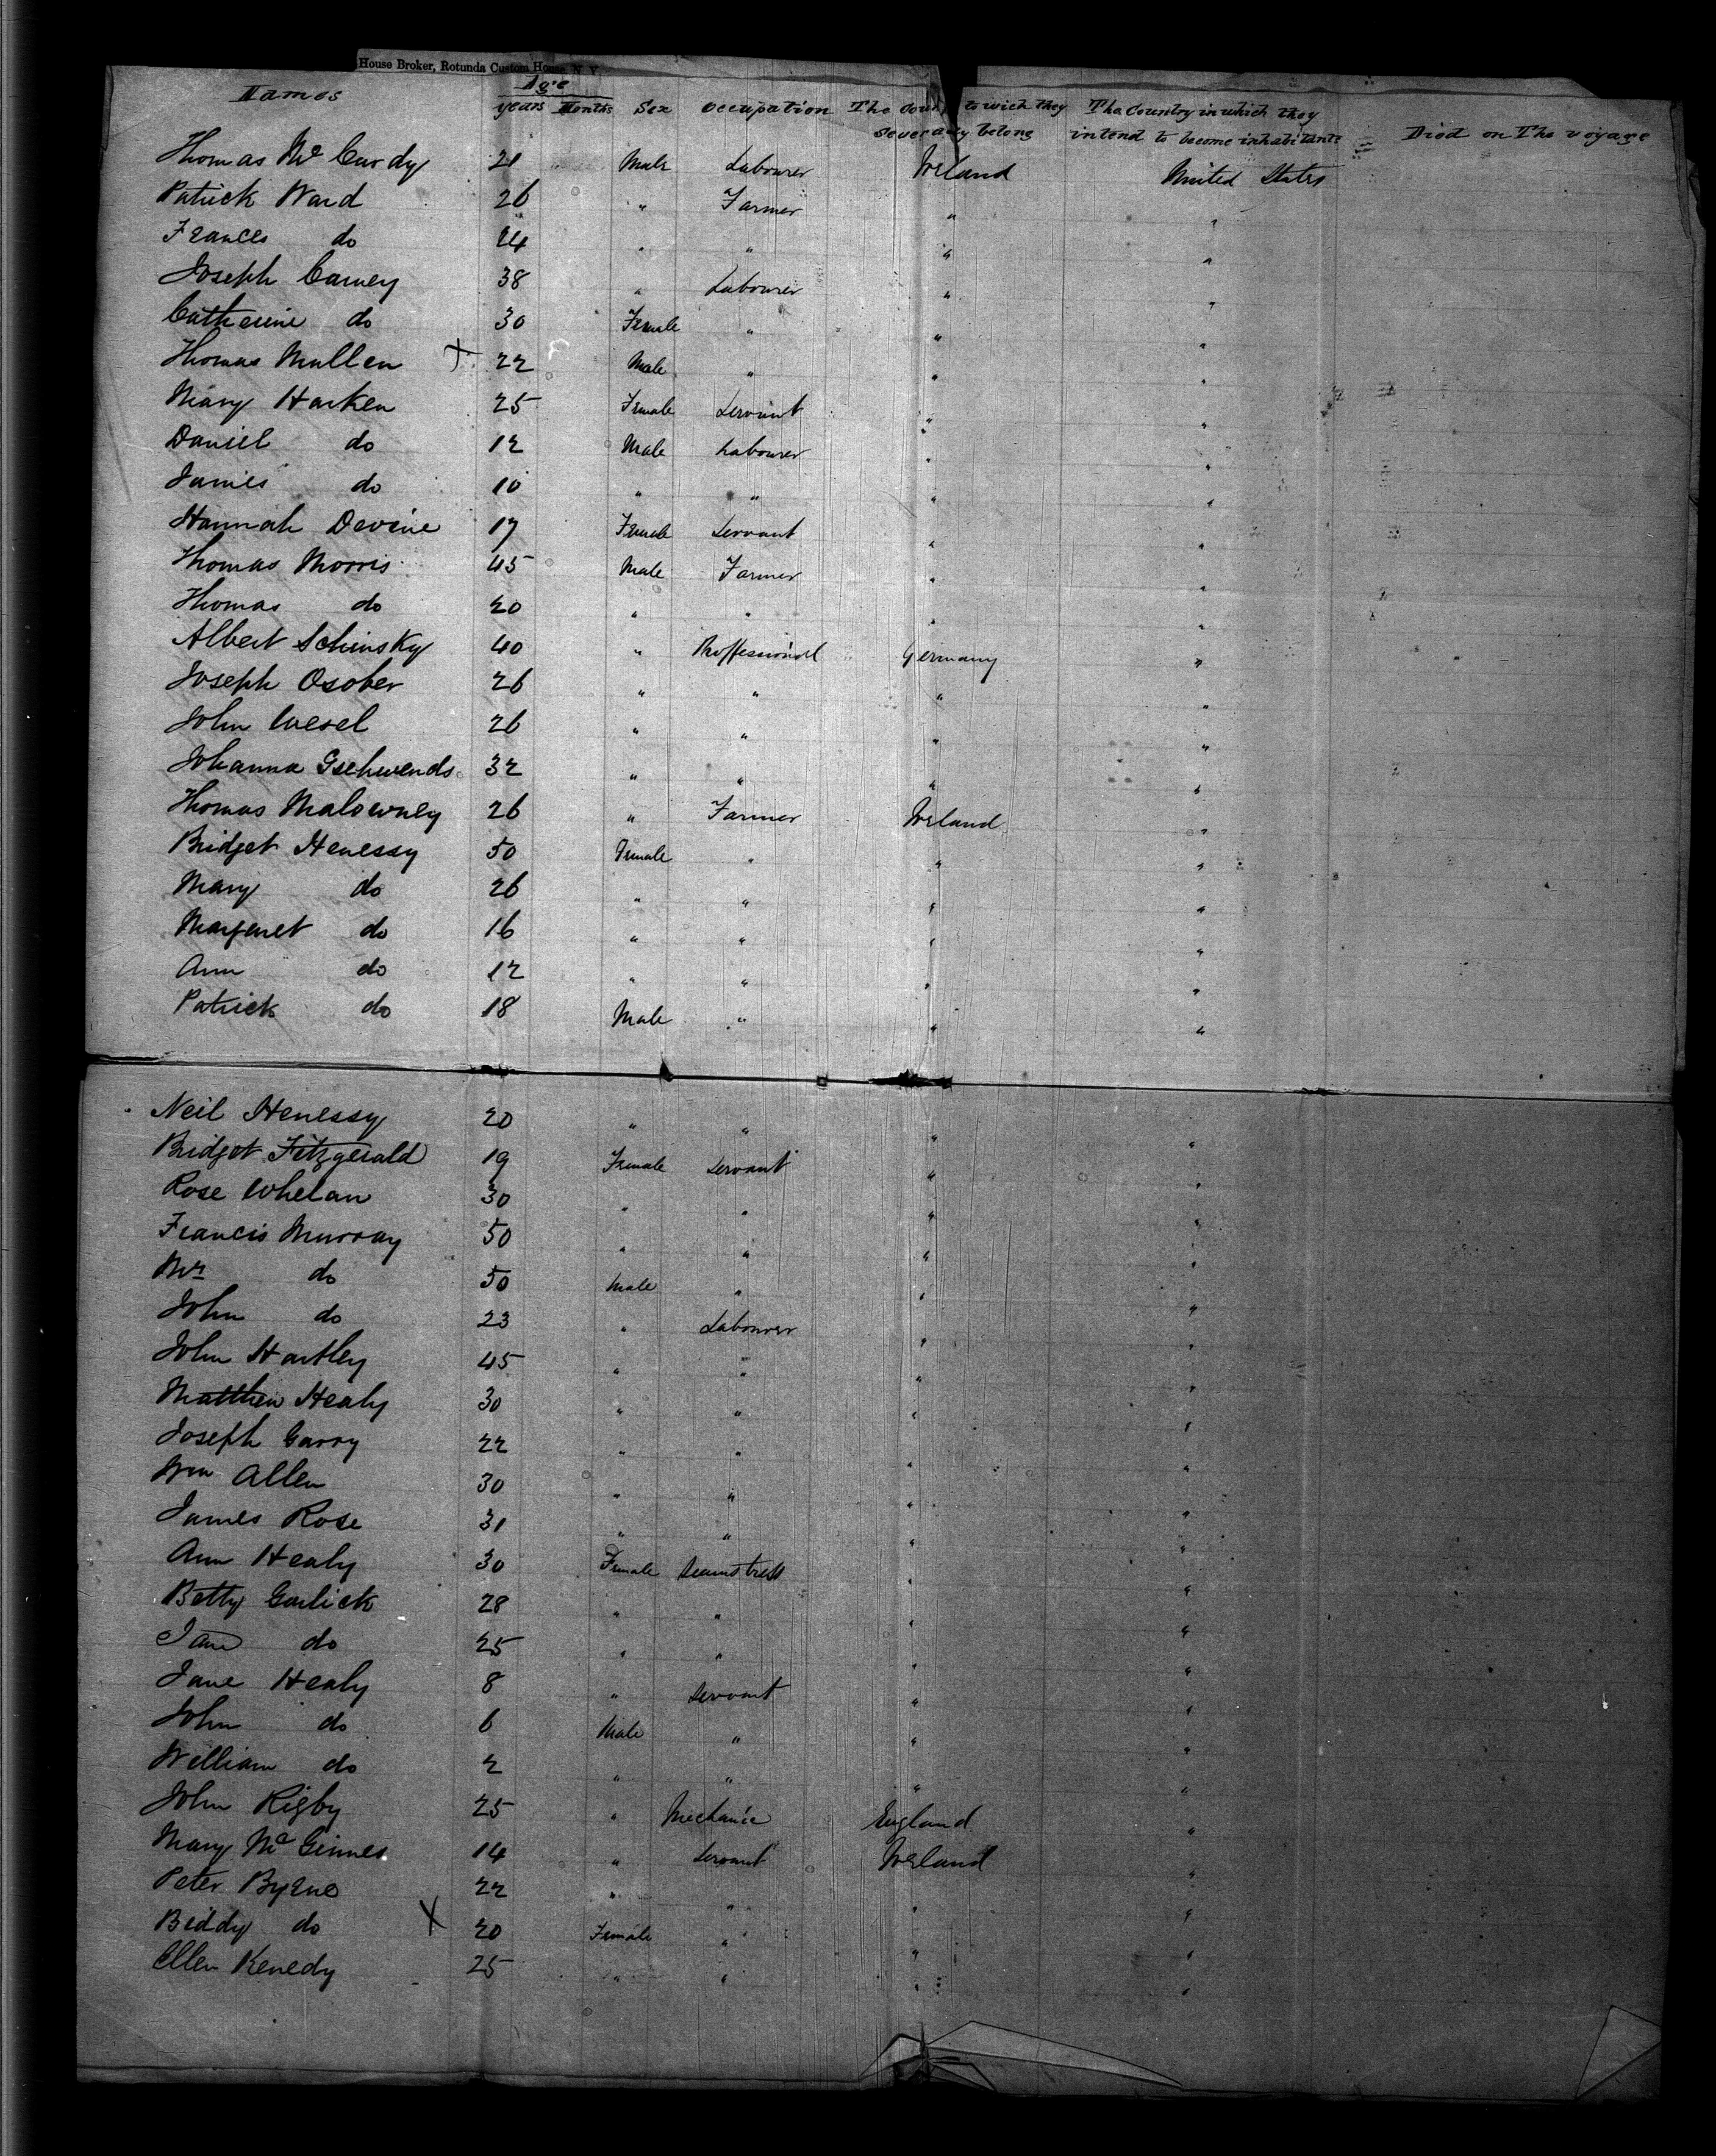 House Broker, Rotunda Custom House, N. Y.
Names Age
years Months Sex Occupation The Coun to wich they The Country in which they
severally belong intend to become inhabitants Died on The voyage
Thomas Mc Curdy 21 Male Labourer Ireland United States
Patrick Ward 26 " Farmer " "
Frances do 24 " " " "
Joseph Carney 38 " Labourer " "
Catherine do 30 Female " " "
Thomas Mullen X 22 Male " " "
Mary Harken 25 Female Servant " "
Daniel do 12 Male Labourer " "
James do 10 " " " "
Hannah Devine 17 Female Servant " "
Thomas Morris 45 Male Farmer " "
Thomas do 20 " " " "
Albert Schinsky 40 " Proffessional Germany "
Joseph Osober 26 " " " "
John Wesel 26 " " " "
Johanna Gschwends 32 " " " "
Thomas Malowney 26 " Farmer Ireland "
Bridget Henessy 50 Female " " "
Mary do 26 " " " "
Margaret do 16 " " " "
Ann do 12 " " " "
Patrick do 18 Male " " "
Neil Henessy 20 " " " "
Bridget Fitzgerald 19 Female Servant " "
Rose Whelan 30 " " " "
Francis Murray 50 " " " "
Mr do 50 Male " " "
John do 23 " Labourer " "
John Hartley 45 " " " "
Matthew Healy 30 " " " "
Joseph Garry 22 " " " "
Wm Allen 30 " " " "
James Rose 31 " " " "
Ann Healy 30 Female Seamstress " "
Betty Garlick 28 " " " "
Jane do 25 " " " "
Jane Healy 8 " Servant " "
John do 6 Male " " "
William do 2 " " " "
John Rigby 25 " Mechanic England "
Mary Mc Ginnes 14 " Servant Ireland "
Peter Byrne 22 " " " "
Biddy do X 20 Female " " "
Ellen Kenedy 25 " " " "